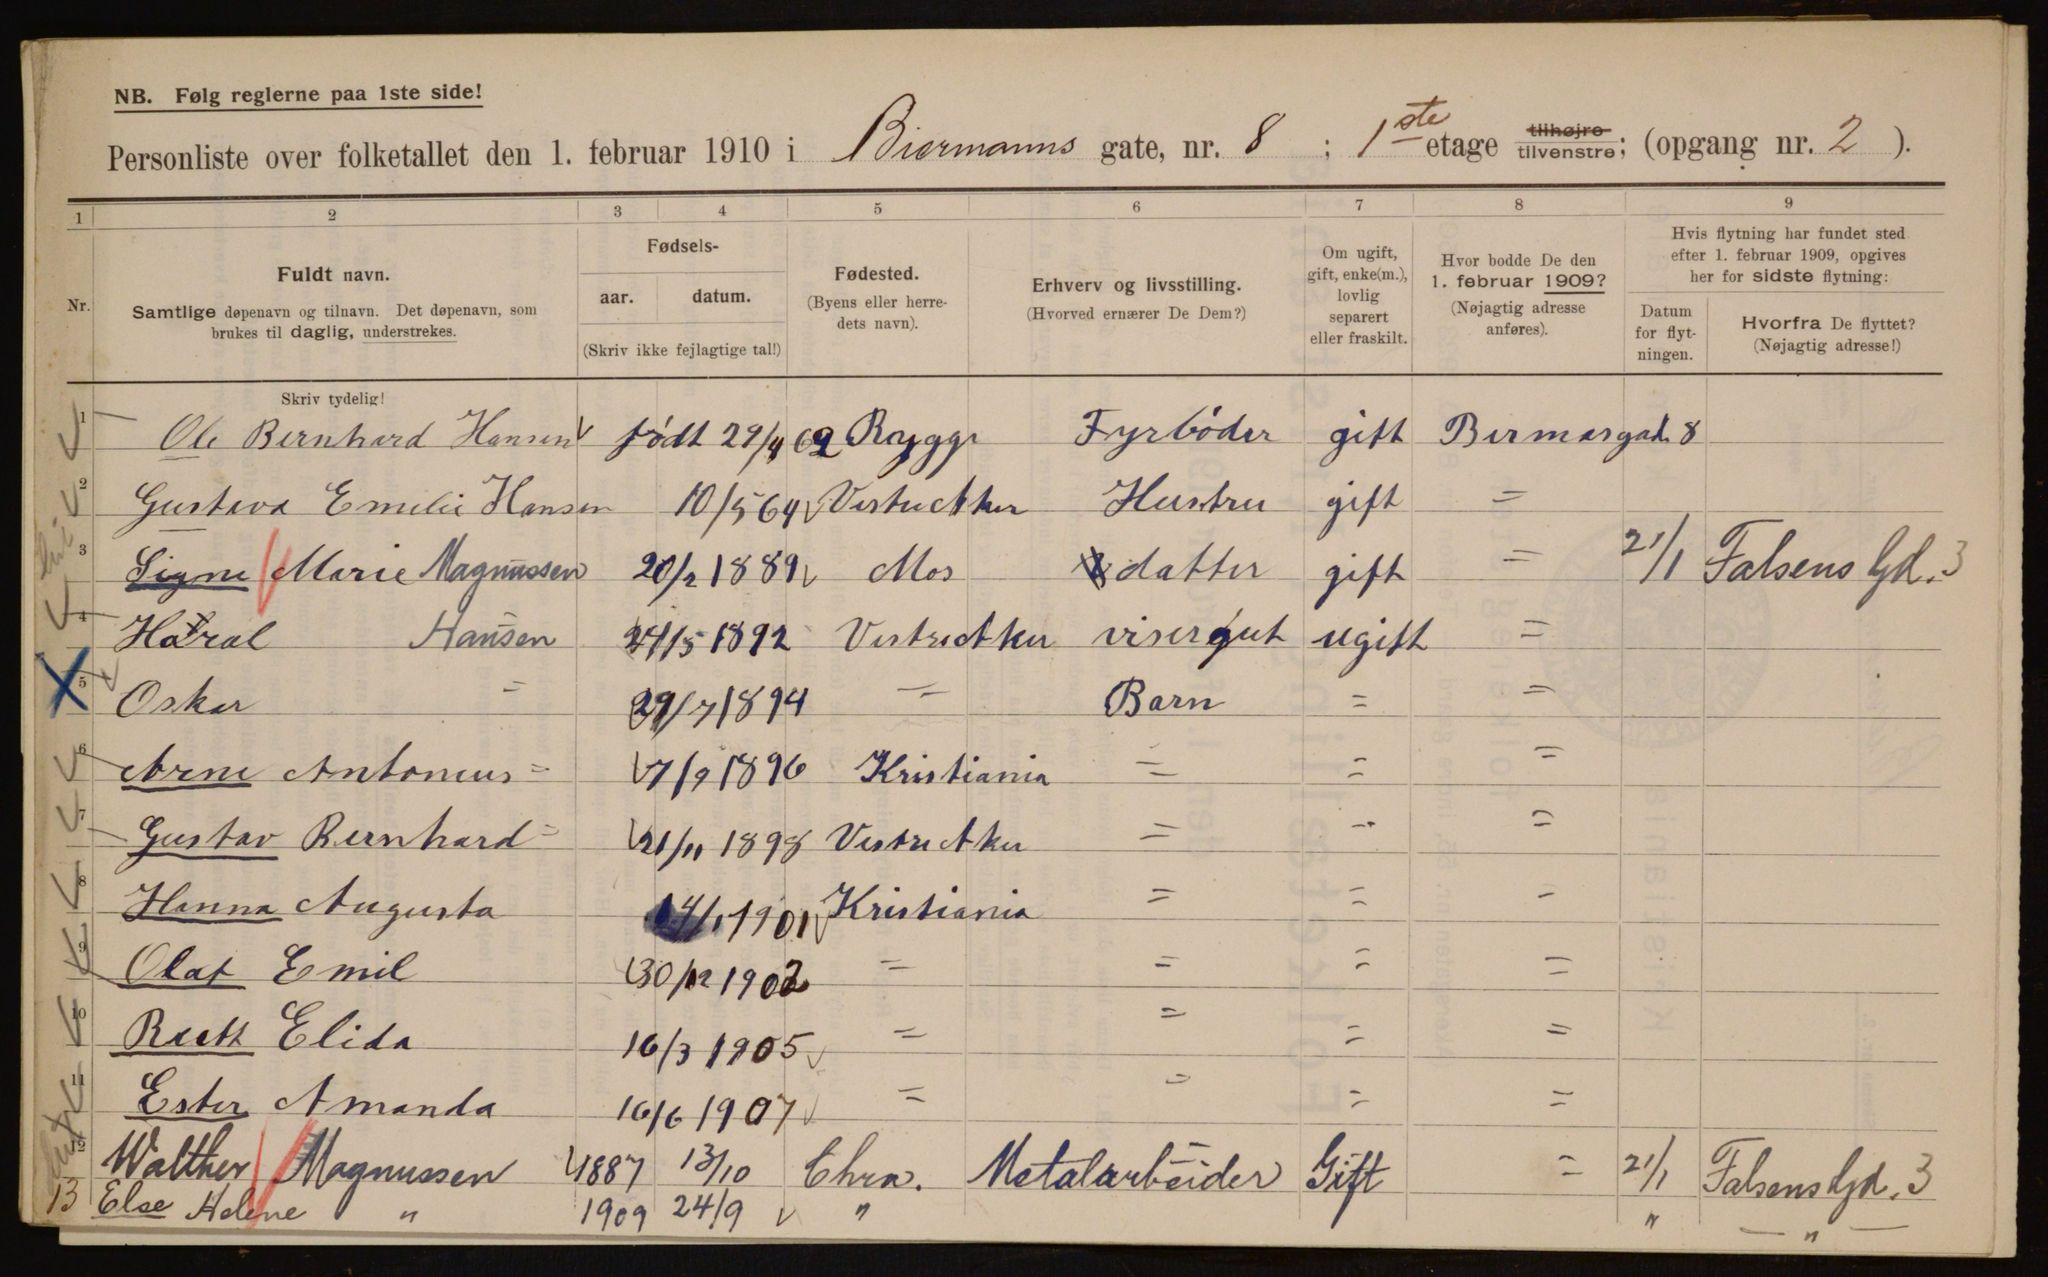 NB. Følg reglerne paa 1ste side!
Personliste over folketallet den 1. februar 1910 i Biermanns gate, nr. 8 ; 1ste etage tilhøjre tilvenstre; (opgang nr. 2 ).
1 2 3 4 5 6 7 8 9
Nr.
Fuldt navn.
Samtlige døpenavn og tilnavn. Det døpenavn, som
brukes til daglig, understrekes.
Skriv tydelig!
Fødsels-
aar. datum.
(Skriv ikke fejlagtige tal!)
Fødested.
(Byens eller herre-
dets navn).
Erhverv og livsstilling.
(Hvorved ernærer De Dem?)
Om ugift,
gift, enke(m.),
lovlig
separert
eller fraskilt.
Hvor bodde De den
1. februar 1909?
(Nøjagtig adresse
anføres).
Hvis flytning har fundet sted
efter 1. februar 1909, opgives
her for sidste flytning:
Datum
for flyt-
ningen.
Hvorfra De flyttet?
(Nøjagtig adresse!)
1 Ole Bernhard Hansen født 29/4 62 Rygge Fyrböder gift Bermasgad. 8
2 Gustava Emilie Hansen 10/5 64 Vestre Aker Hustru gift =
3 Signe Marie Magnussen 20/2 1889 Mos datter gift = 21/1 Falsens Gd. 3
4 Haral Hansen 24/5 1892 Vestre Aker visergut ugift =
5 Oskar = 29/7 1894 = Barn = =
6 Arne Antonius = 7/9 1896 Kristiania = = =
7 Gustav Bernhard = 21/11 1898 Vestre Aker = = =
8 Hanna Augusta 14/1 1901 Kristiania = = =
9 Olaf Emil 30/12 1902 = = = =
10 Rutt Elida 16/3 1905 = = = =
11 Ester Amanda 16/6 1907 = = = =
12 Walther Magnussen 1887 13/10 Chra. Metalarbeider Gift = 21/1 Falsens Gd. 3
13 Else Helene " 1909 24/9 " " — " —